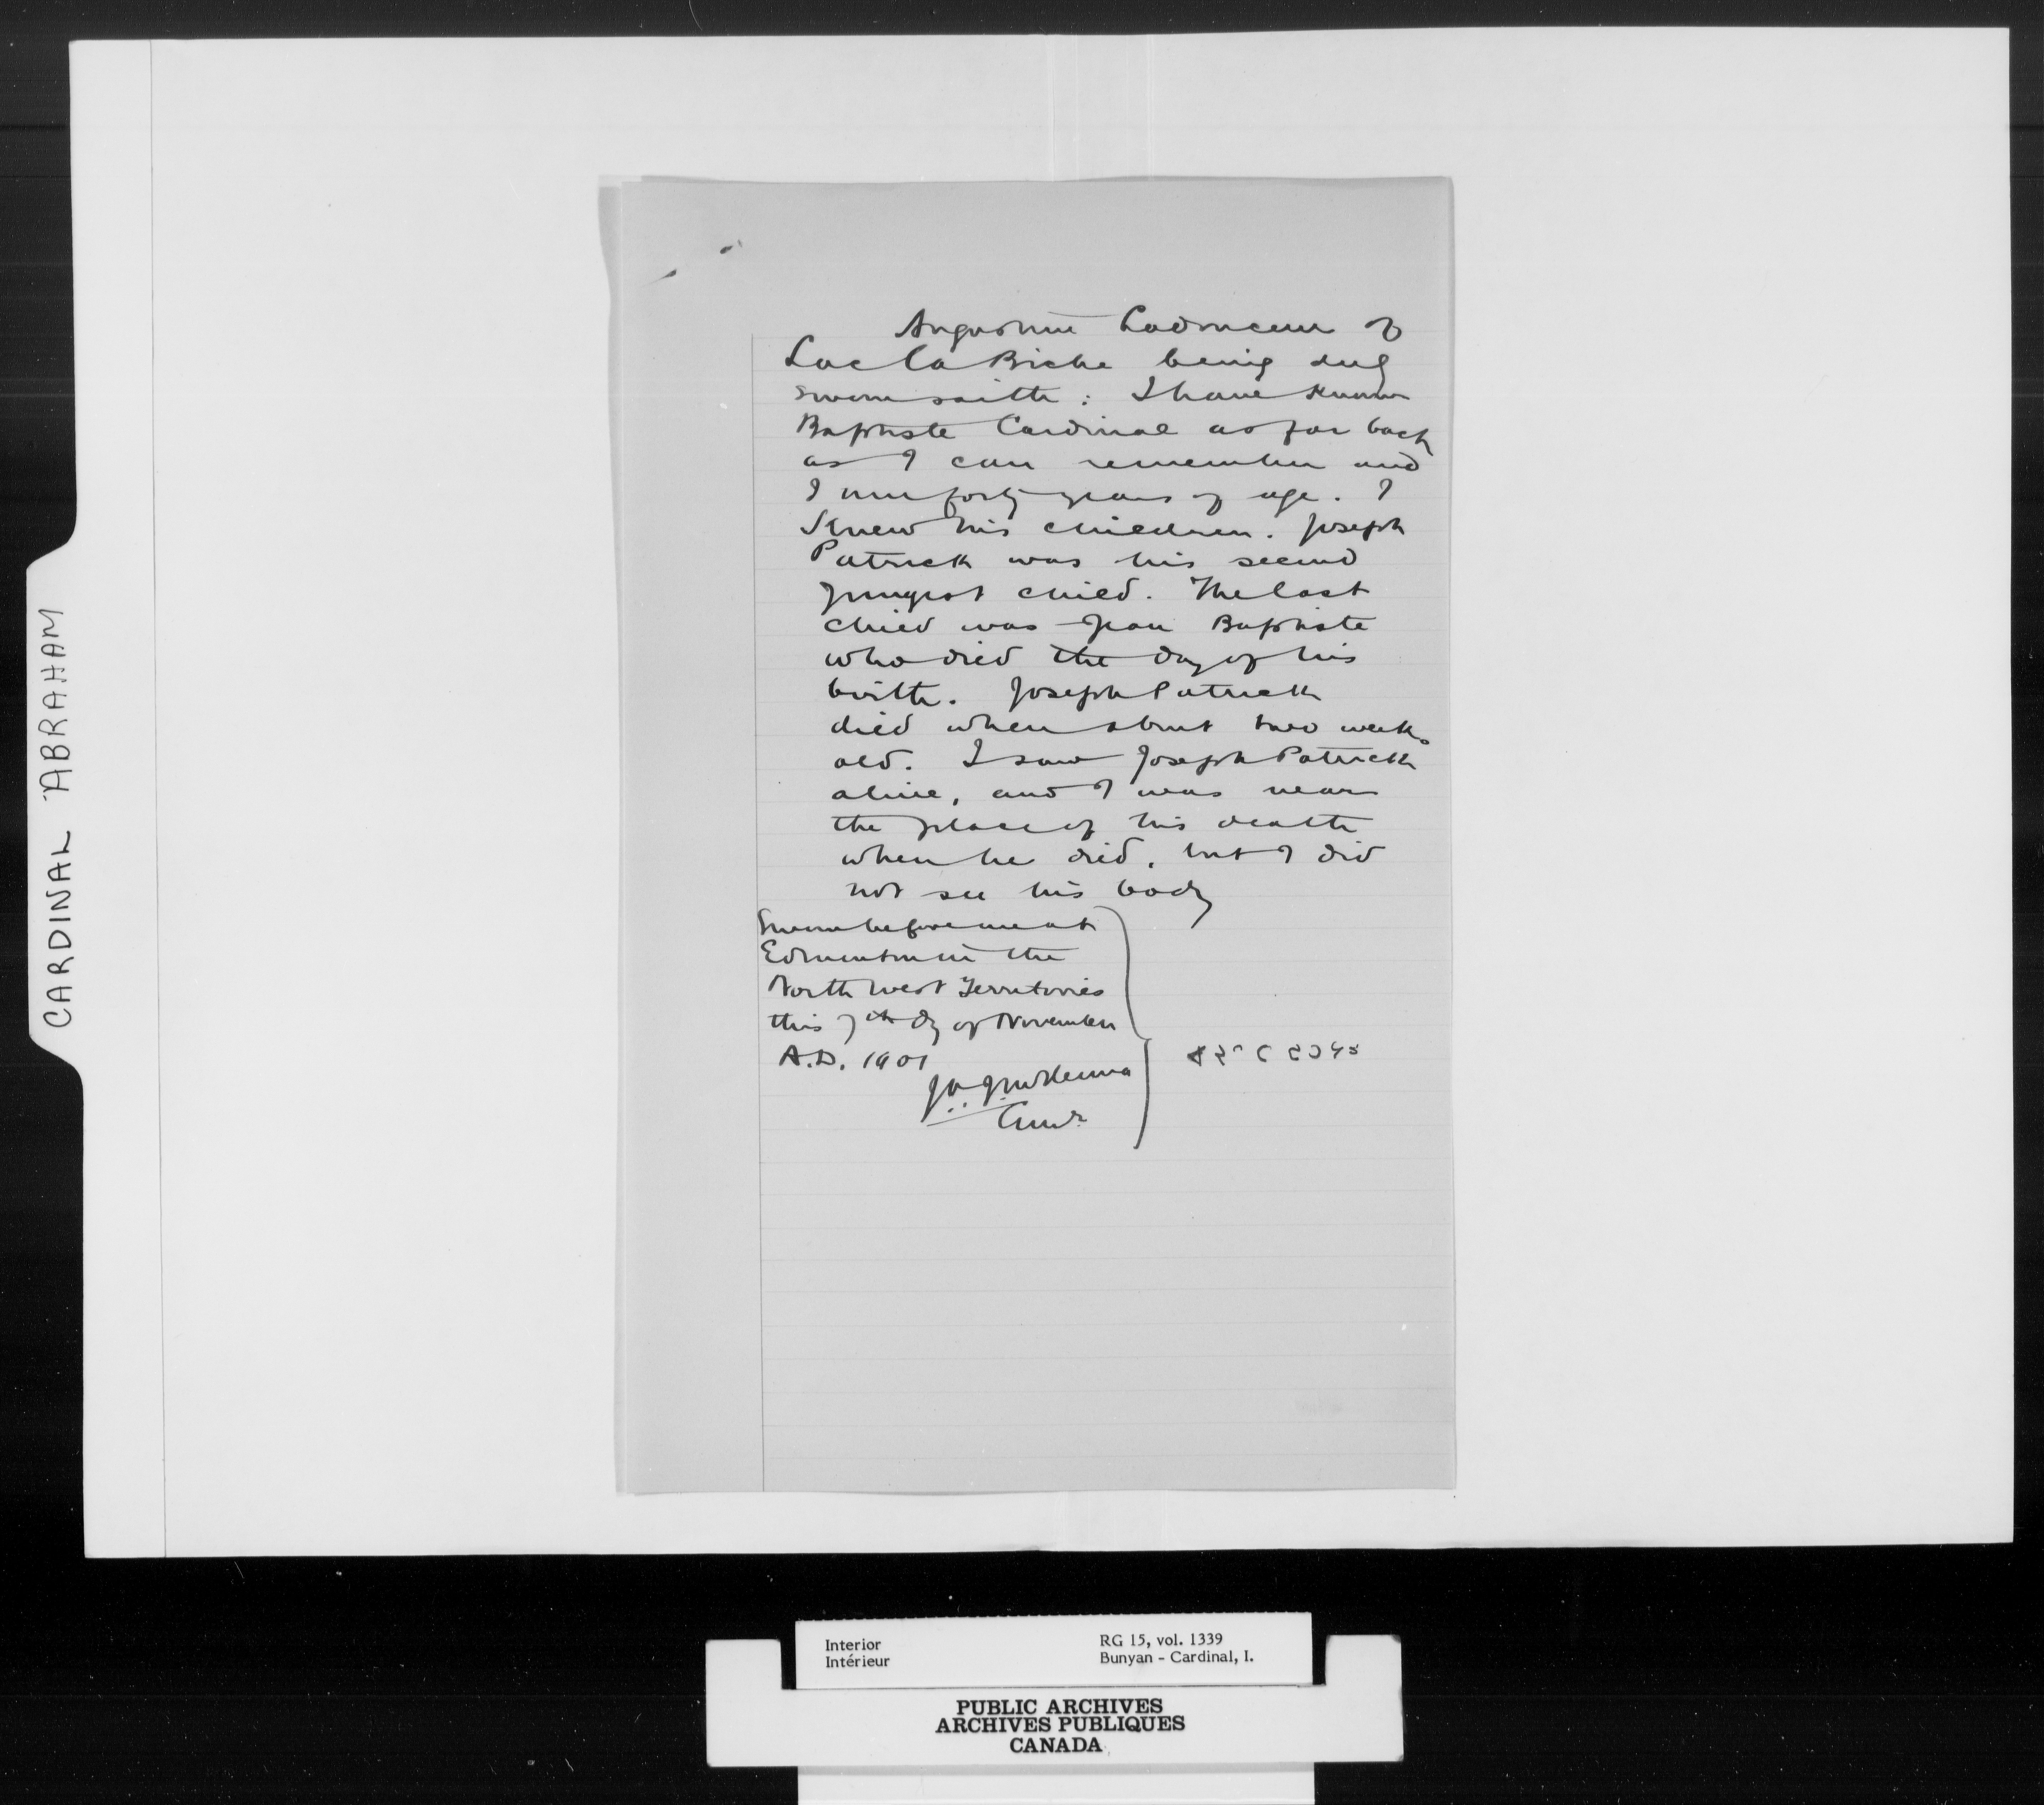 CARDINAL ABRAHAM
Augustine Ladouceur of
Lac la Biche being duly
sworn saith: I have known
Baptiste Cardinal as far back
as I can remember and
I am forty years of age. I
knew his children. Joseph
Patrick was his second
youngest child. The last
child was Jean Baptiste
who died the day of his
birth. Joseph Patrick
died when about two weeks
old. I saw Joseph Patrick
alive, and I was near
the place of his death
when he died, but I did
not see his body
Sworn before me at
Edmonton in the
North West Territories
this 7th dy of November
A.D. 1901
J.A.J. McKenna
Comr.
Interior
Intérieur
RG 15, vol. 1339
Bunyan - Cardinal, I.
PUBLIC ARCHIVES
ARCHIVES PUBLIQUES
CANADA